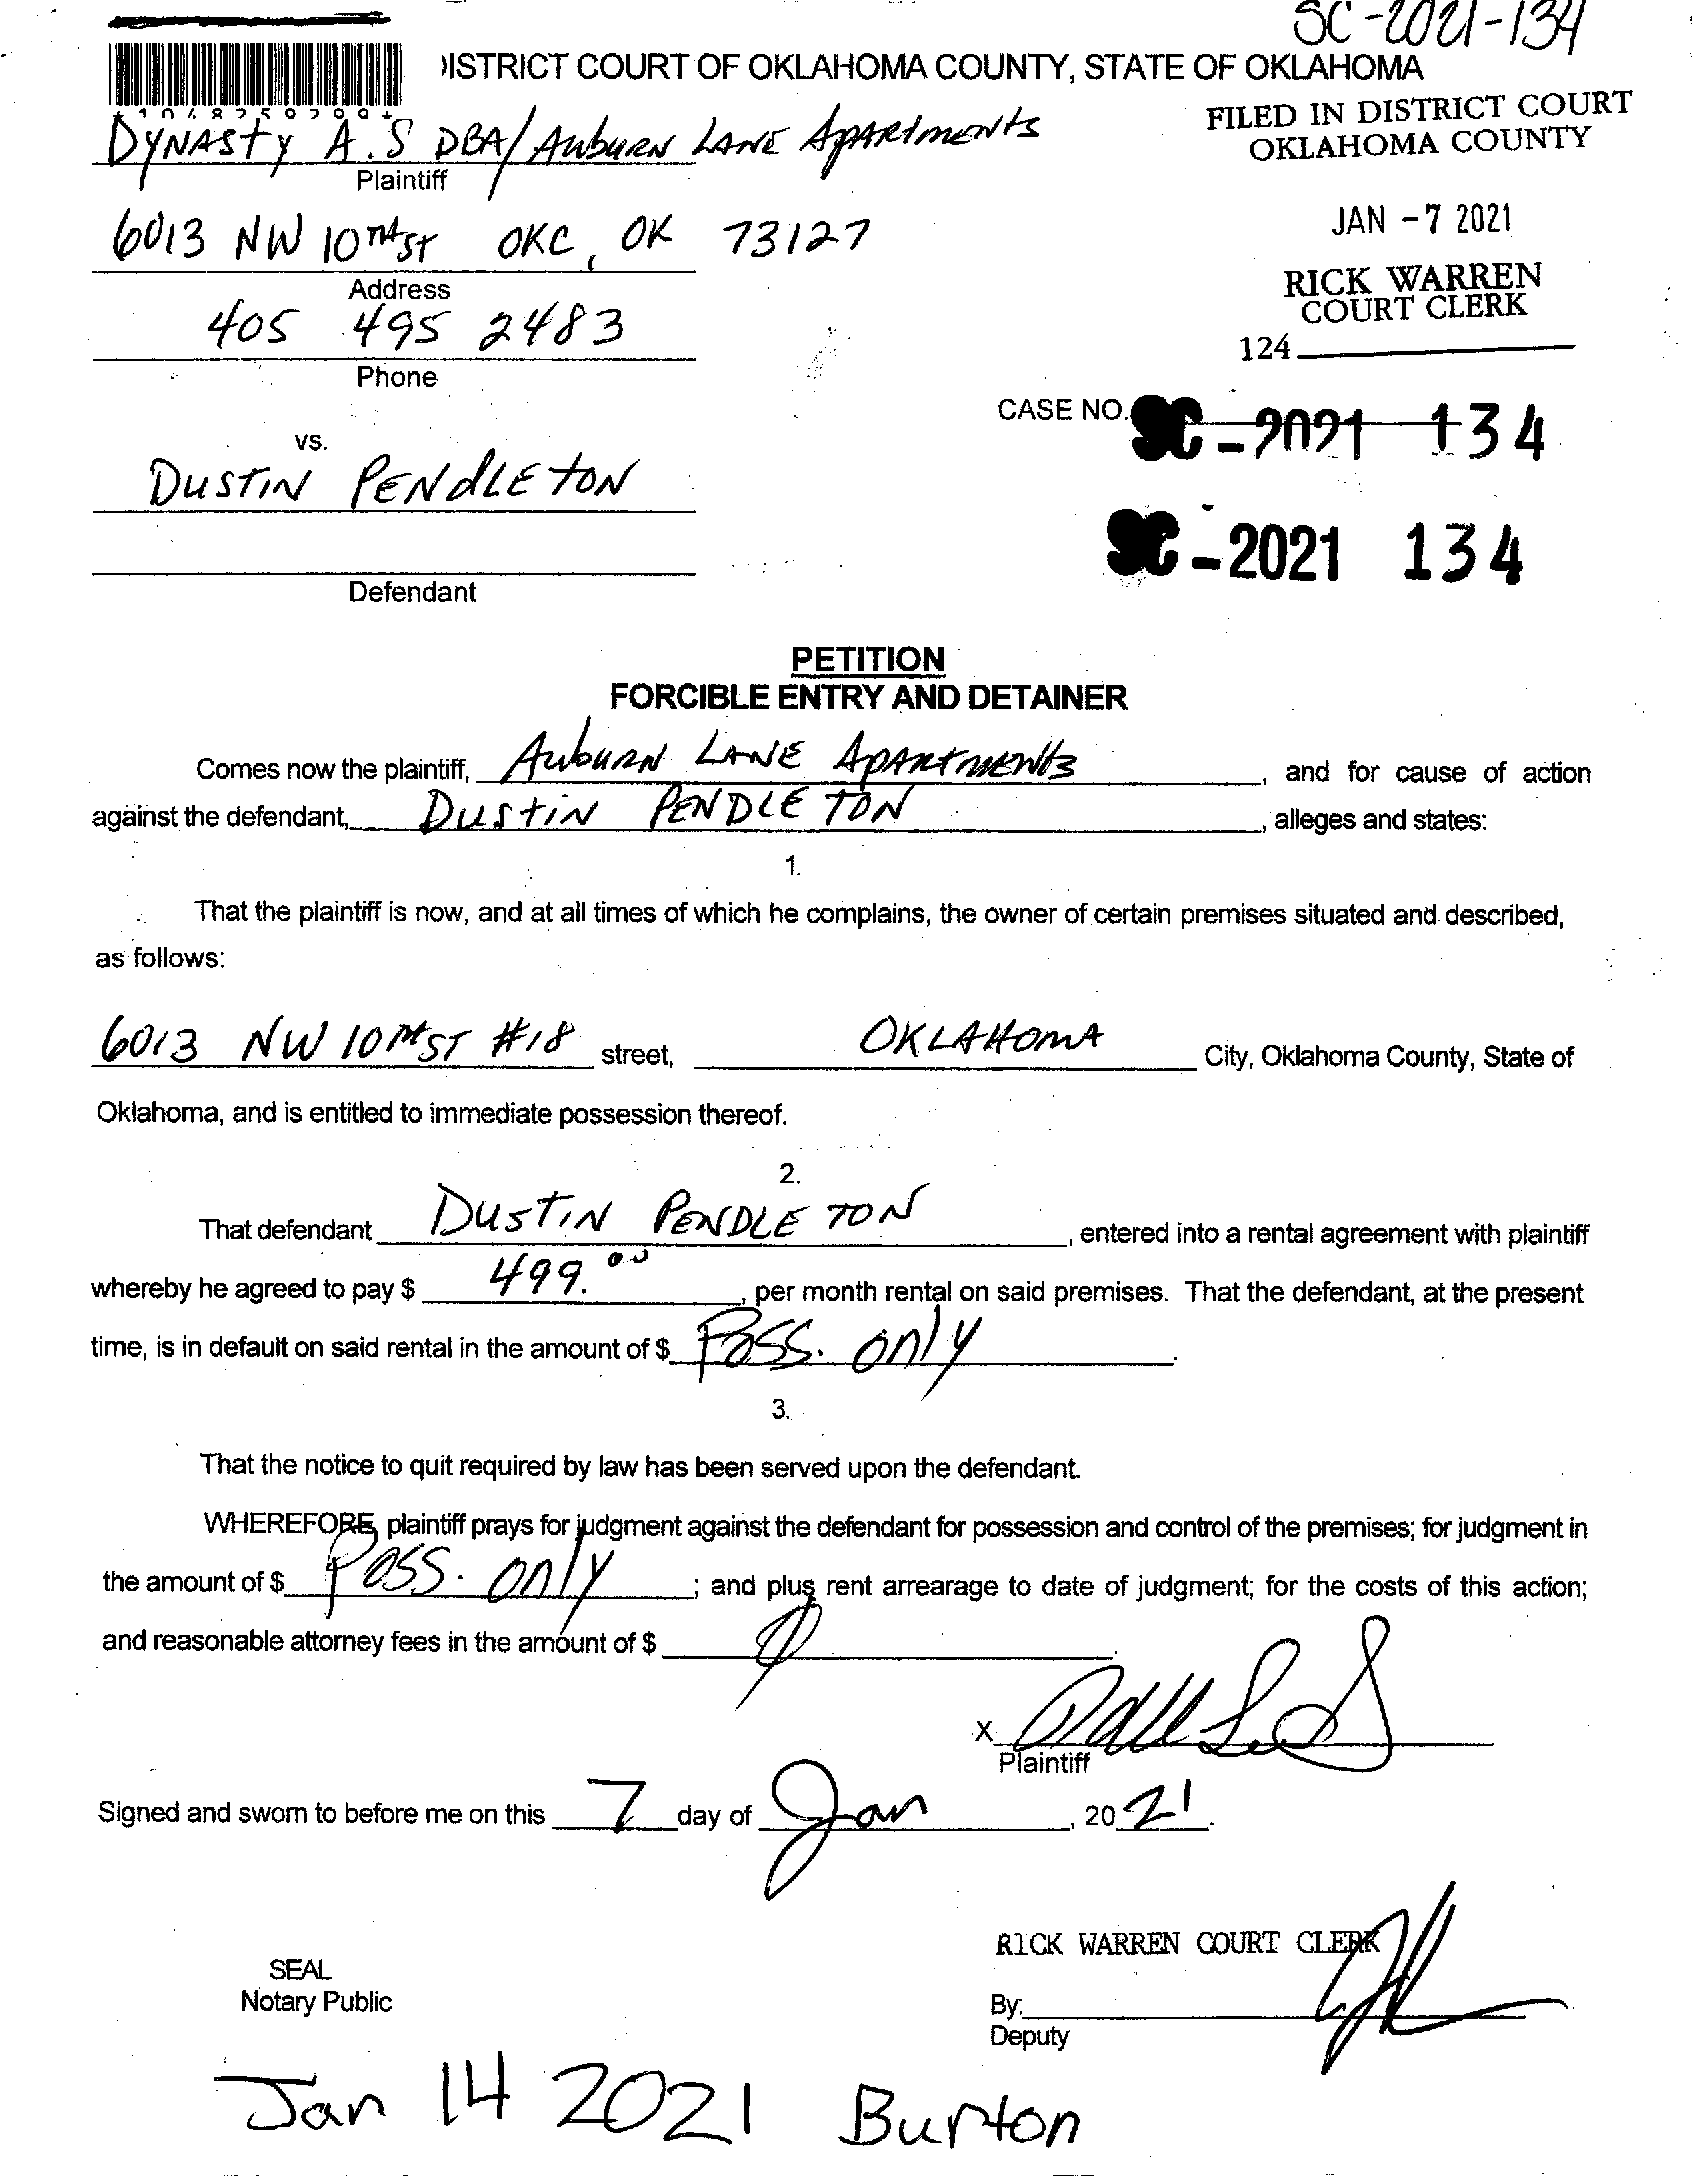 SC-2021-134
DISTRICT COURT OF OKLAHOMA COUNTY, STATE OF OKLAHOMA
DYNASTY A.S DBA/ AUBURN LANE APARTMENTS
Plaintiff
FILED IN DISTRICT COURT
OKLAHOMA COUNTY
6013 NW 10TH ST OKC, OK 73127
Address
JAN -7 2021
405 495 2483
Phone
RICK WARREN
COURT CLERK
124
vs.
CASE NO. SC-2021 134
DUSTIN PENDLETON
Defendant
SC-2021 134
PETITION
FORCIBLE ENTRY AND DETAINER
Comes now the plaintiff, AUBURN LANE APARTMENTS, and for cause of action
against the defendant, DUSTIN PENDLETON, alleges and states:
1.
That the plaintiff is now, and at all times of which he complains, the owner of certain premises situated and described,
as follows:
6013 NW 10TH ST #18 street, OKLAHOMA City, Oklahoma County, State of
Oklahoma, and is entitled to immediate possession thereof.
2.
That defendant DUSTIN PENDLETON, entered into a rental agreement with plaintiff
whereby he agreed to pay $ 499.00, per month rental on said premises. That the defendant, at the present
time, is in default on said rental in the amount of $ Poss. only.
3.
That the notice to quit required by law has been served upon the defendant.
WHEREFORE, plaintiff prays for judgment against the defendant for possession and control of the premises; for judgment in
the amount of $ Poss. only; and plus rent arrearage to date of judgment; for the costs of this action;
and reasonable attorney fees in the amount of $
X
Plaintiff
Signed and sworn to before me on this 7 day of Jan, 2021.
RICK WARREN COURT CLERK
SEAL
Notary Public
By:
Deputy
Jan 14 2021 Burton